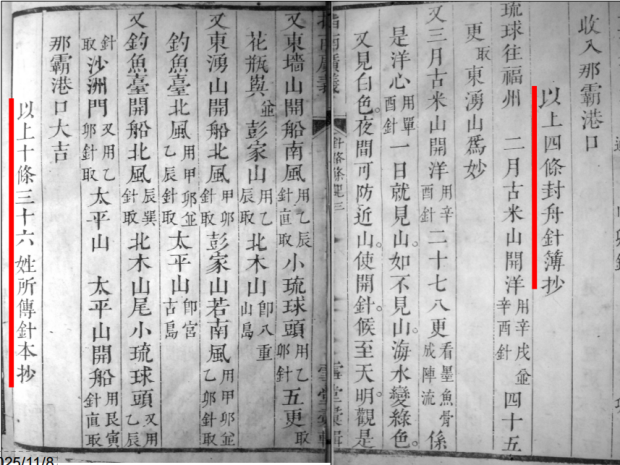 收入那霸港口
以上四條封舟針簿抄
琉球往福州　二月古米山開洋用辛戌並辛酉針四十五
更取東湧山為妙
又三月古米山開洋用辛酉針二十七八更看墨魚骨成陣流係
是洋心用單酉針一日就見山。如不見山。海水變綠色。
又見白色。夜間可防近山。使開針候至天明觀是
指南廣義
針路條記三
又東墻山開船南風用乙辰針直取小琉球頭用乙卯針五更取
花瓶與並彭家山用乙取北木山即八重山島
又東湧山開船北風用甲卯針取彭家山若南風用甲卯並乙卯針取
釣魚臺北風用甲卯並乙辰針取太平山即宮古島
又釣魚臺開船北風辰巽針取北木山尾小琉球頭又用乙辰
針取沙洲門又用乙卯針取太平山　太平山開船用艮寅針直取
那霸港口大吉
以上十條三十六姓所傳針本抄
025/11/8